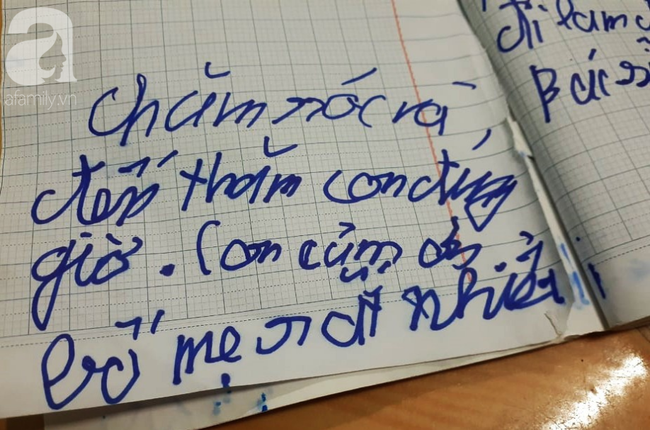 afamily.vn
chăm sóc và
đến thăm con đúng
giờ. Con cảm ơn
bố mẹ rất nhiều
đi làm
Bác sĩ